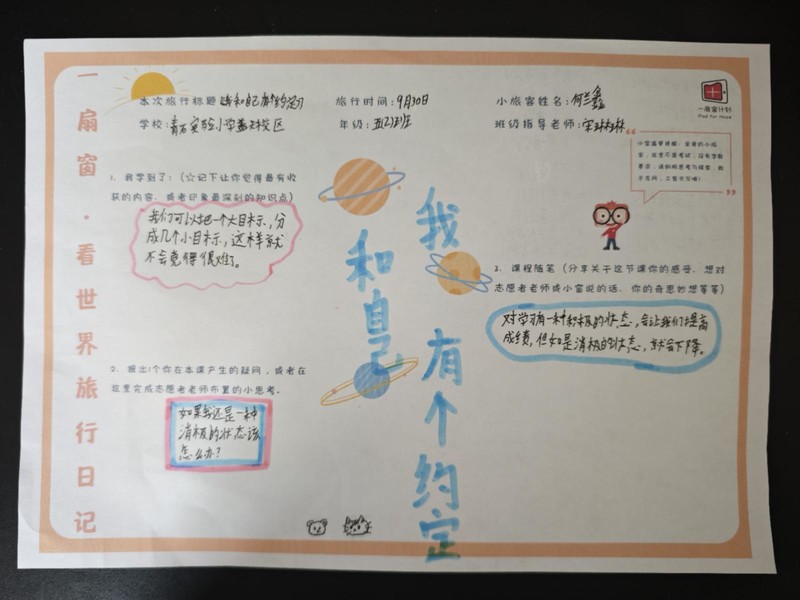 一扇窗·看世界旅行日记
本次旅行标题 我和自己有个约定
旅行时间：9月30日
小旅客姓名：何兰鑫
学校：青石实验小学
年级：五(2)班
班级指导老师：宋琳林
一扇窗计划
Pad for Hope
1、我学到了：（☆记下让你觉得最有收
获的内容、或者印象最深刻的知识点）
我们可以把一个大目标，分
成几个小目标，这样就
不会觉得很难了。
我和自己有个约定
2、提出1个你在本课产生的疑问，或者在
这里完成志愿者老师布置的小思考。
如果我还是一种
消极的状态该
怎么办？
3、课程随笔（分享关于这节课你的感受、想对
志愿者老师或小窗说的话、你的奇思妙想等等）
对学习有一种积极的状态，会让我们提高
成绩，但如是消极的状态，就会下降。